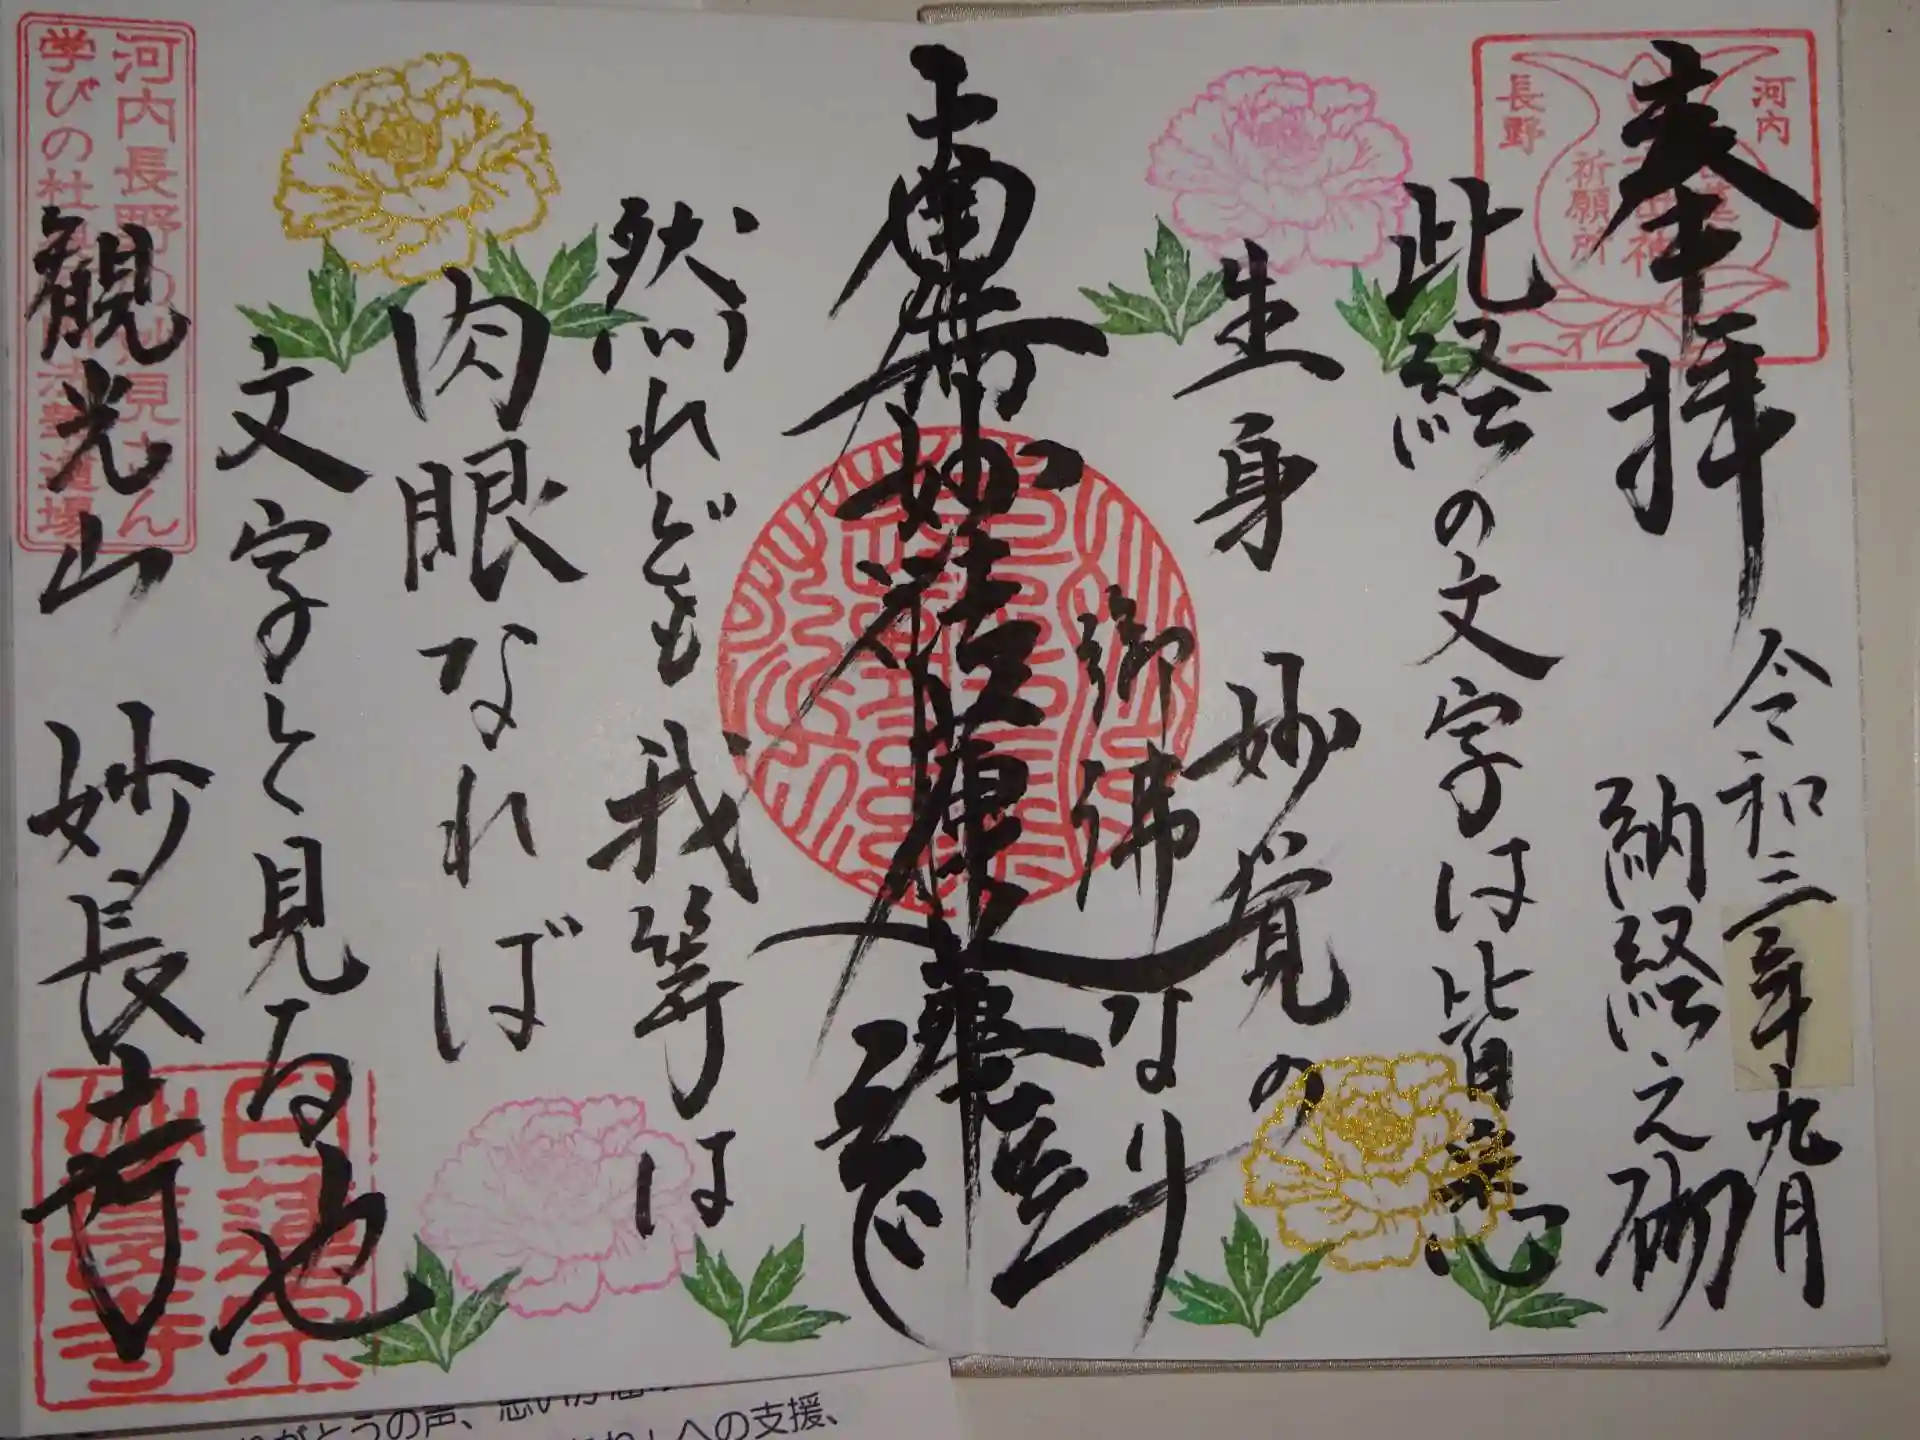 奉拝
令和三年九月
納経之砌
河内
長野
祈願所
此経の文字は皆悉
生身 妙覚の
御佛なり
南無妙法蓮華経
然れども我等は
肉眼なれば
文字と見る也
観光山 妙長寺
河内長野の妙見さん
学びの杜
法華道場
日蓮宗
妙長寺
への支援、